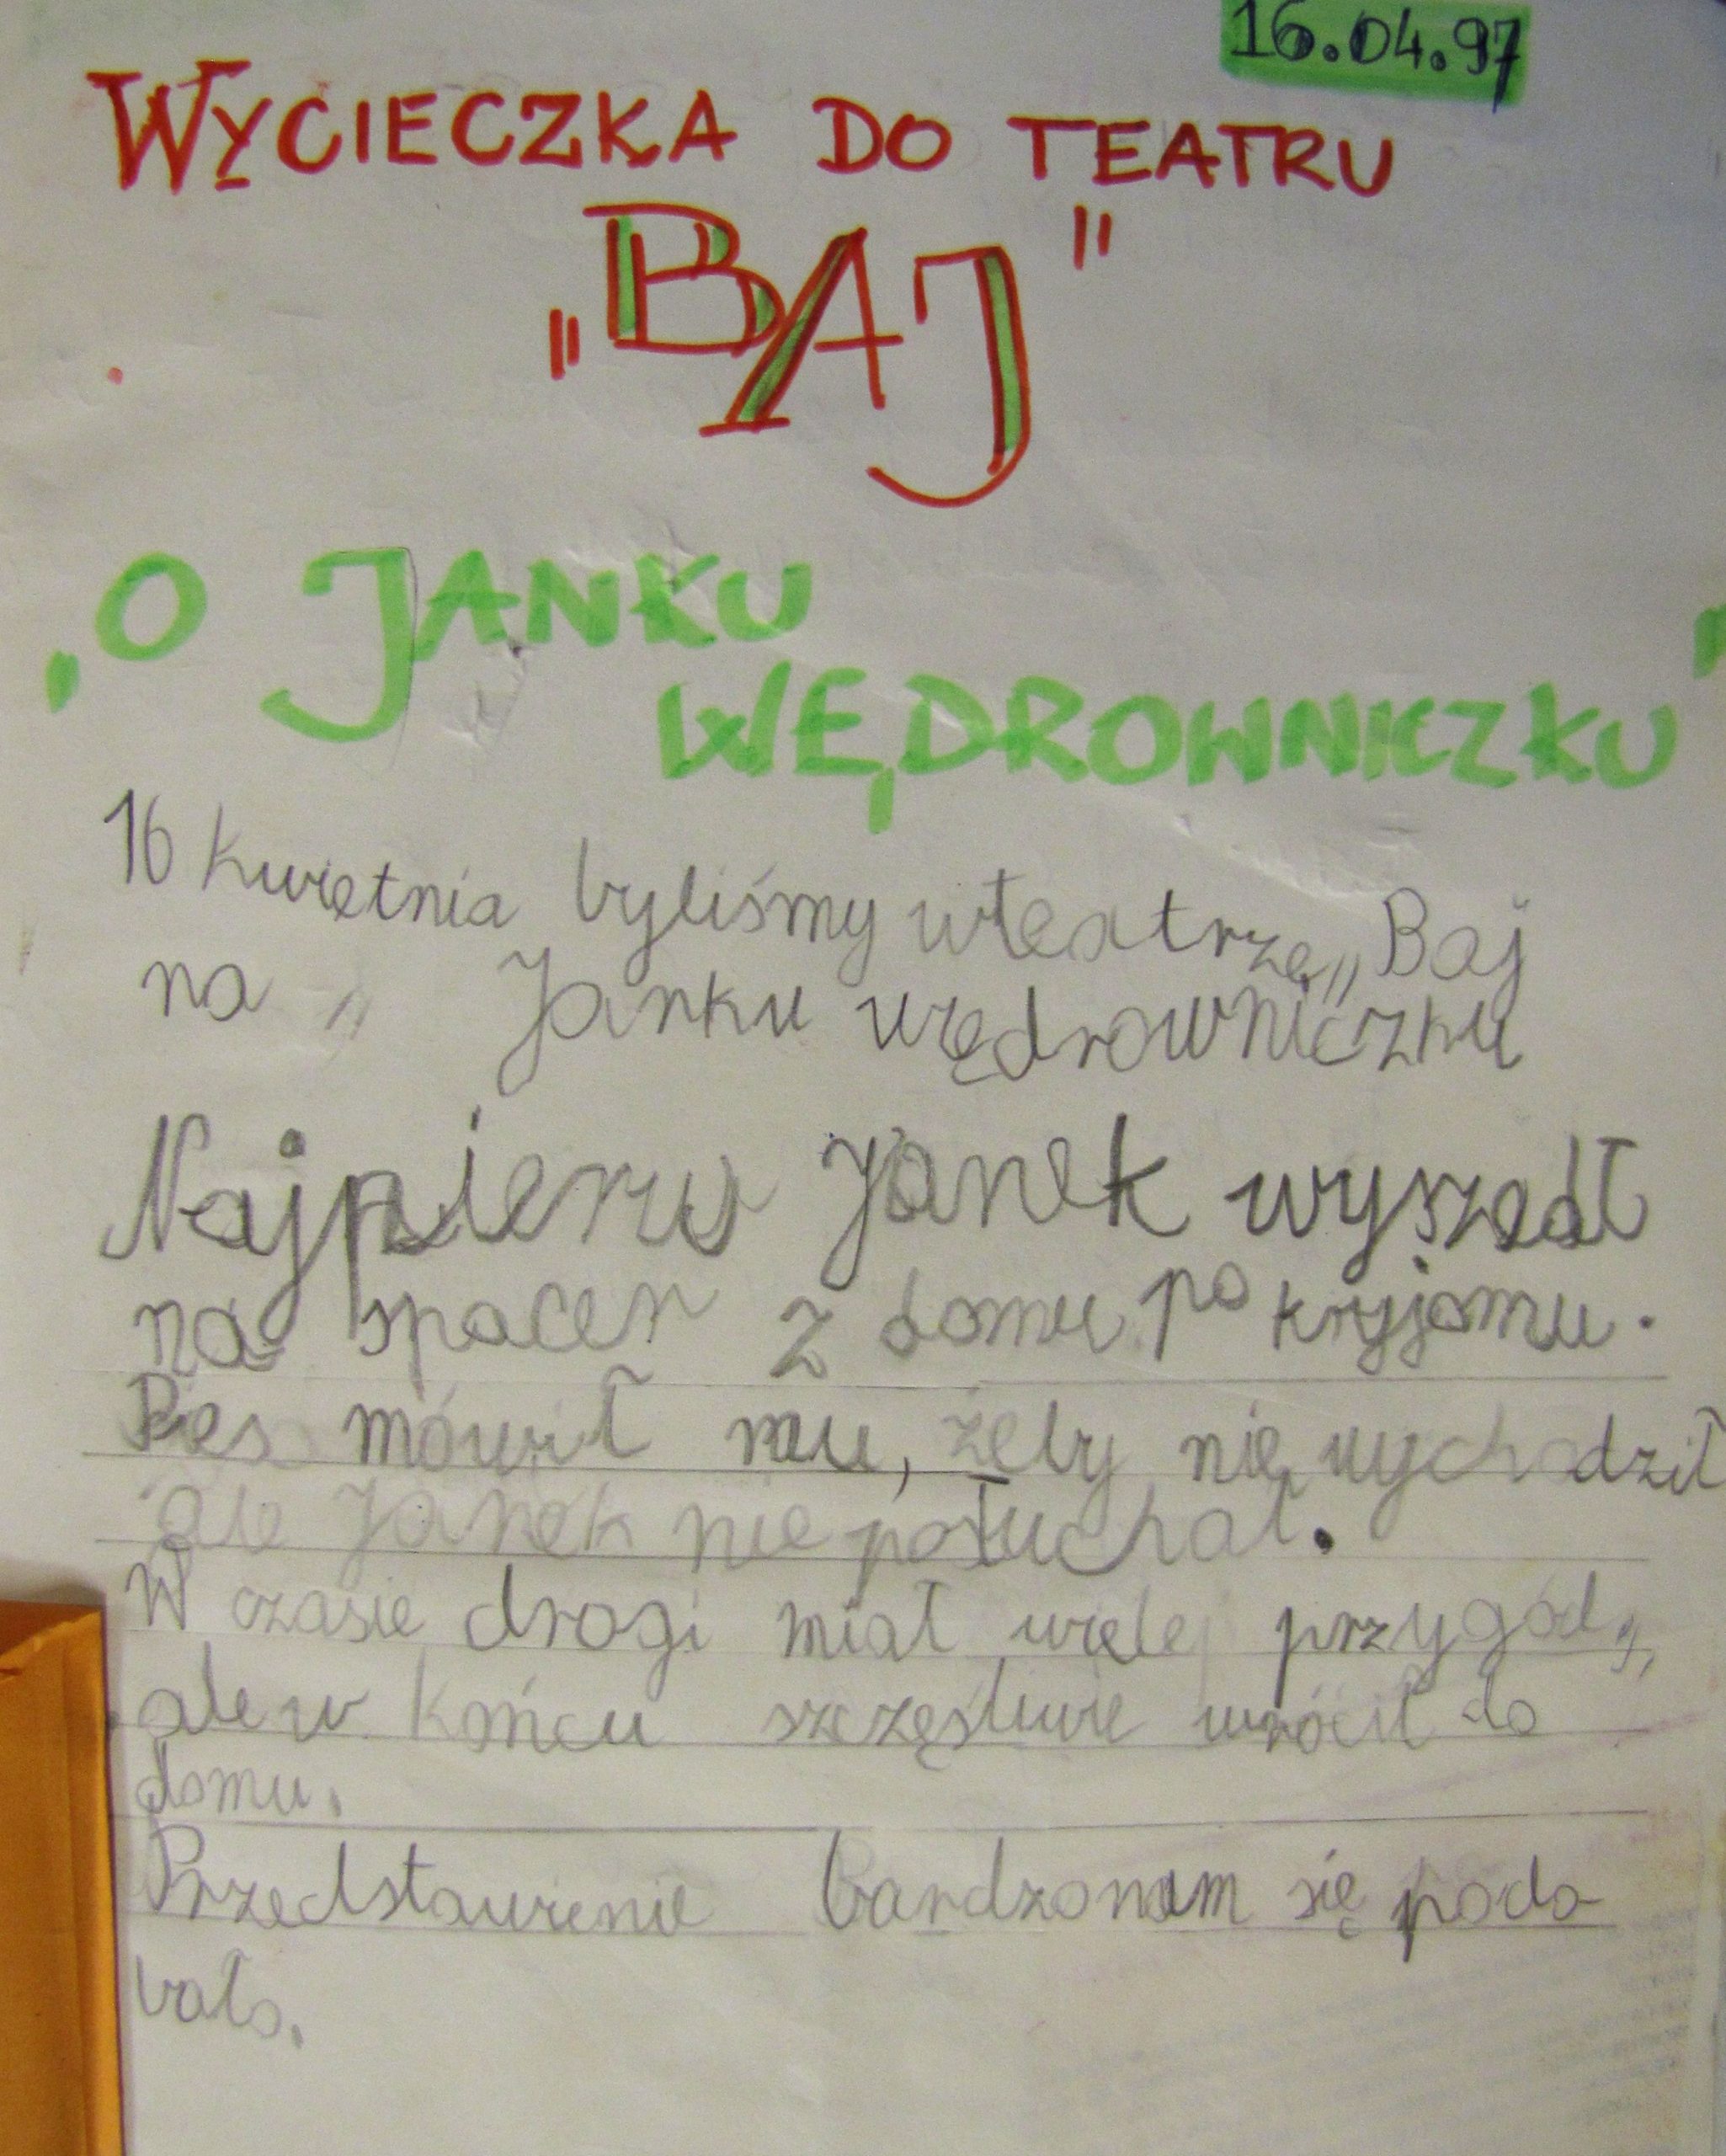 16.04.97
WYCIECZKA DO TEATRU
„BAJ"
„O JANKU
WĘDROWNICZKU"
16 kwietnia byliśmy wteatrze „Baj
na „ Janku wędrowniczku
Najpierw Janek wyszedł
na spacer z domu po kryjomu.
Pies mówił mu, żeby nie wychodził
ale Janek nie posłuchał.
W czasie drogi miał wiele przygód,
ale w końcu szczęśliwie wrócił do
domu.
Przedstawienie bardzo nam się podo
bało.